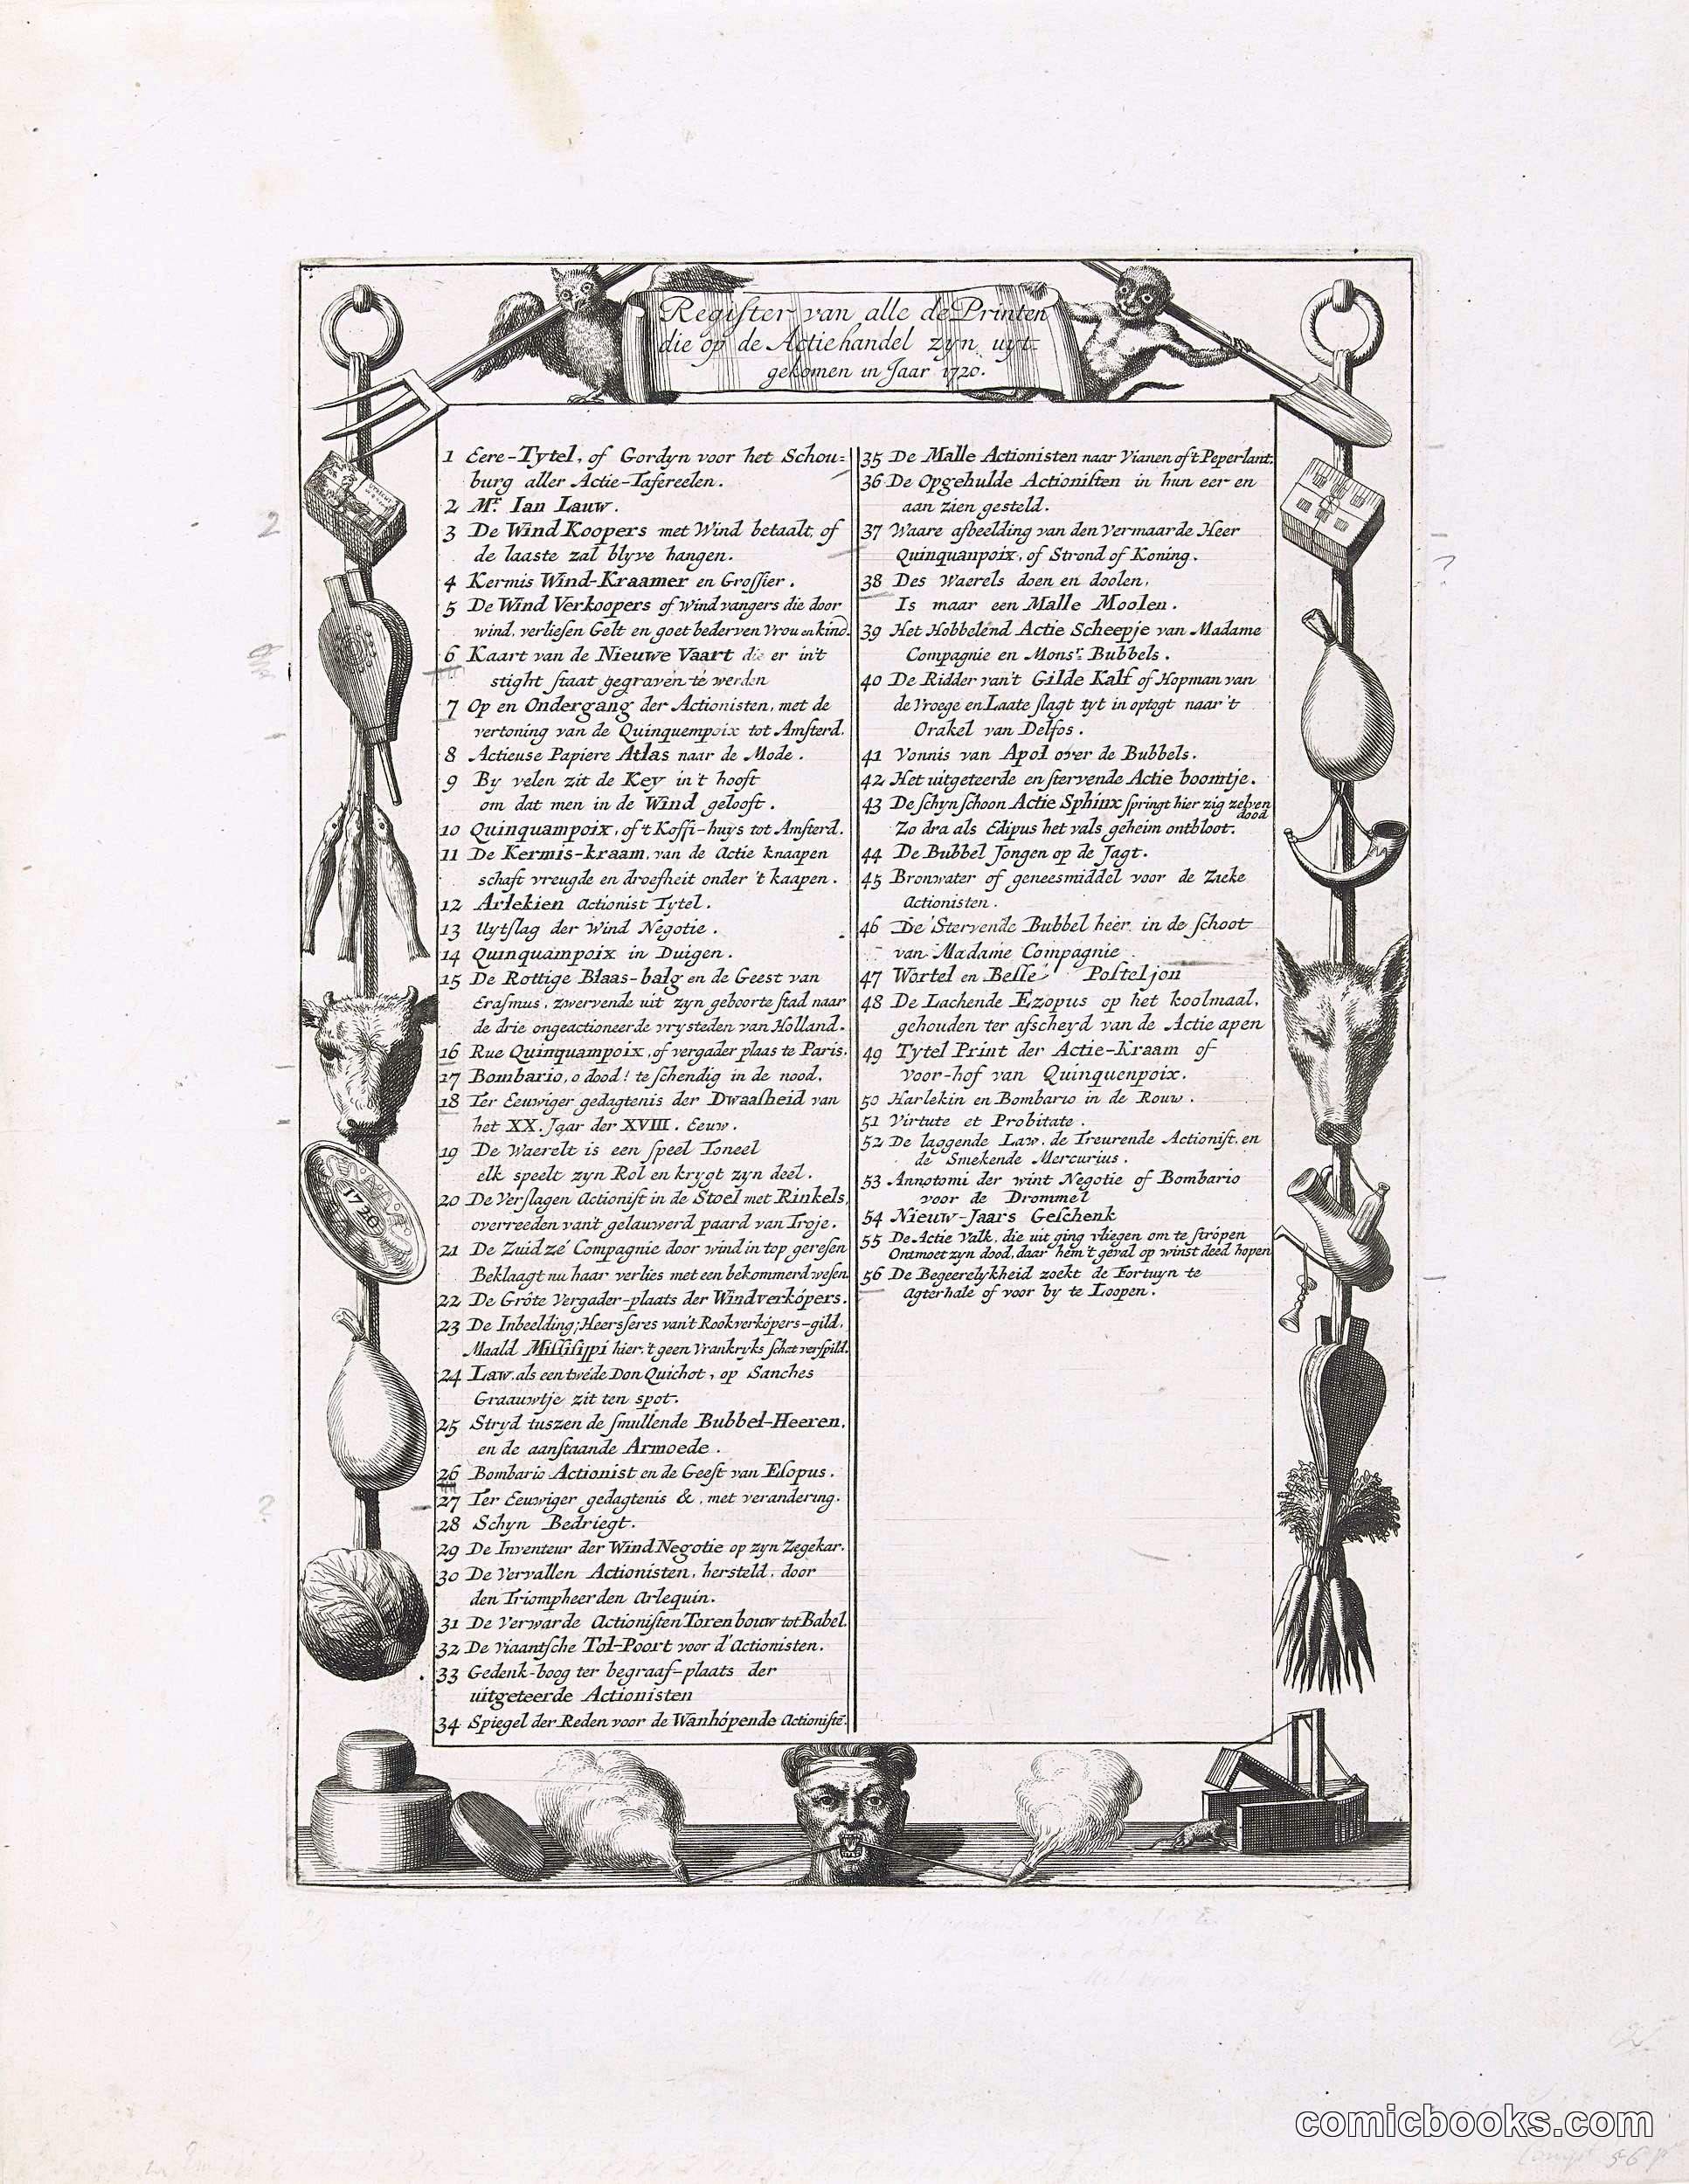 Register van alle de Printen
die op de Actiehandel zyn uyt-
gekomen in Jaar 1720.
1 Eere-Tytel, of Gordyn voor het Schou=
burg aller Actie-Tafereelen.
2 Mr. Ian Lauw.
3 De Wind Koopers met Wind betaalt, of
de laaste zal blyve hangen.
4 Kermis Wind-Kraamer en Grossier.
5 De Wind Verkoopers of Windvangers die door
wind, verliesen Gelt en goet bederven Vrou en kind.
6 Kaart van de Nieuwe Vaart die er in't
stight staat gegraven te werden
7 Op en Ondergang der Actionisten, met de
vertoning van de Quinquempoix tot Amsterd.
8 Actieuse Papiere Atlas naar de Mode.
9 By velen zit de Key in't hooft
om dat men in de Wind gelooft.
10 Quinquampoix, of 't Koffi-huys tot Amsterd.
11 De Kermis-kraam, van de Actie knaapen
schaft vreugde en droefheit onder 't kaapen.
12 Arlekien Actionist Tytel.
13 Uytslag der Wind Negotie.
14 Quinquampoix in Duigen.
15 De Rottige Blaas-balg en de Geest van
Erasmus, zwervende uit zyn geboorte stad naar
de drie ongeactioneerde vrysteden van Holland.
16 Rue Quinquampoix, of vergader plaas te Paris.
17 Bombario, o dood! te schendig in de nood.
18 Ter Eeuwiger gedagtenis der Dwaasheid van
het XX. Jaar der XVIII. Eeuw.
19 De Waerelt is een speel Toneel
elk speelt zyn Rol en krygt zyn deel.
20 De Verslagen Actionist in de Stoel met Rinkels,
overreeden van't gelauwerd paard van Troje.
21 De Zuid zé Compagnie door wind in top geresen
Beklaagt nu haar verlies met een bekommerd wesen.
22 De Gróte Vergader-plaats der Windverkópers.
23 De Inbeelding; Heersseres van't Rookverkópers-gild,
Maald Missisippi hier, 't geen Vrankryks schat verspild.
24 Law, als een twéde Don Quichot, op Sanches
Graauwtje zit ten spot.
25 Stryd tuszen de smullende Bubbel-Heeren,
en de aanstaande Armoede.
26 Bombario Actionist en de Geest van Esopus.
27 Ter Eeuwiger gedagtenis &, met verandering.
28 Schyn Bedriegt.
29 De Inventeur der Wind Negotie op zyn Zegekar.
30 De Vervallen Actionisten, hersteld, door
den Triompheerden Arlequin.
31 De Verwarde Actionisten Torenbouw tot Babel.
32 De Viaantsche Tol-Poort voor d'Actionisten.
33 Gedenk-boog ter begraaf-plaats der
uitgeteerde Actionisten
34 Spiegel der Reden voor de Wanhópende Actionisté.
35 De Malle Actionisten naar Vianen of 't Peperlant.
36 De Opgehulde Actionisten in hun eer en
aan zien gesteld.
37 Waare afbeelding van den Vermaarde Heer
Quinquanpoix, of Strond of Koning.
38 Des Waerels doen en doolen,
Is maar een Malle Moolen.
39 Het Hobbelend Actie Scheepje van Madame
Compagnie en Monsr. Bubbels.
40 De Ridder van't Gilde Kalf of Hopman van
de Vroege en Laate slagt tyt in optogt naar 't
Orakel van Delfos.
41 Vonnis van Apol over de Bubbels.
42 Het uitgeteerde en stervende Actie boomtje.
43 De schyn schoon Actie Sphinx springt hier zig zelven
dood
Zo dra als Edipus het vals geheim ontbloot.
44 De Bubbel Jongen op de Jagt.
45 Bronwater of geneesmiddel voor de Zieke
Actionisten.
46 De Stervende Bubbel heer, in de schoot
van Madame Compagnie
47 Wortel en Belle Posteljon
48 De Lachende Ezopus op het koolmaal,
gehouden ter afscheyd van de Actie apen
49 Tytel Print der Actie-Kraam of
voor-hof van Quinquenpoix.
50 Harlekin en Bombario in de Rouw.
51 Virtute et Probitate.
52 De laggende Law, de Treurende Actionist, en
de Smekende Mercurius.
53 Annotomi der wint Negotie of Bombario
voor de Drommel
54 Nieuw-Jaars Geschenk
55 De Actie Valk, die uit ging vliegen om te strópen
Ontmoet zyn dood, daar hem 't geval op winst deed hopen
56 De Begeerelykheid zoekt de Fortuyn te
agterhale of voor by te Loopen.
1720
comicbooks.com